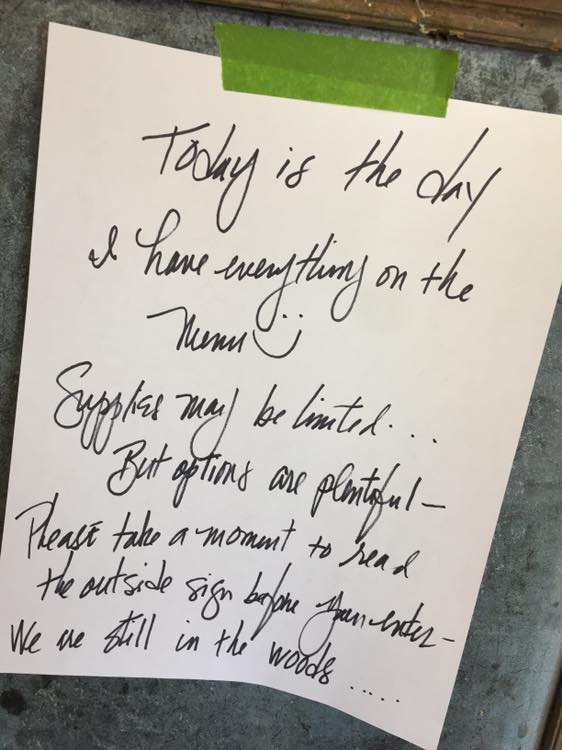 Today is the day
I have everything on the
menu
Supplies may be limited...
But options are plentiful—
Please take a moment to read
the outside sign before you enter—
We are still in the woods .....